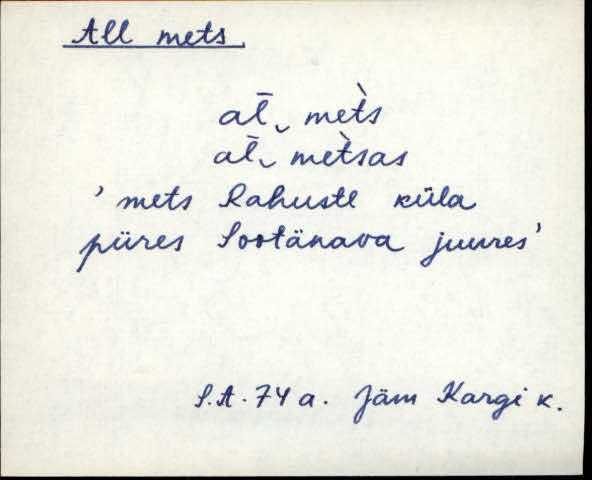 All mets.
at̄ˬ met̀s
at̄ˬ met̀sas
'mets Rahuste küla
piires Sootänava juures'
S.A. 74 a. Jäm Kargi k.